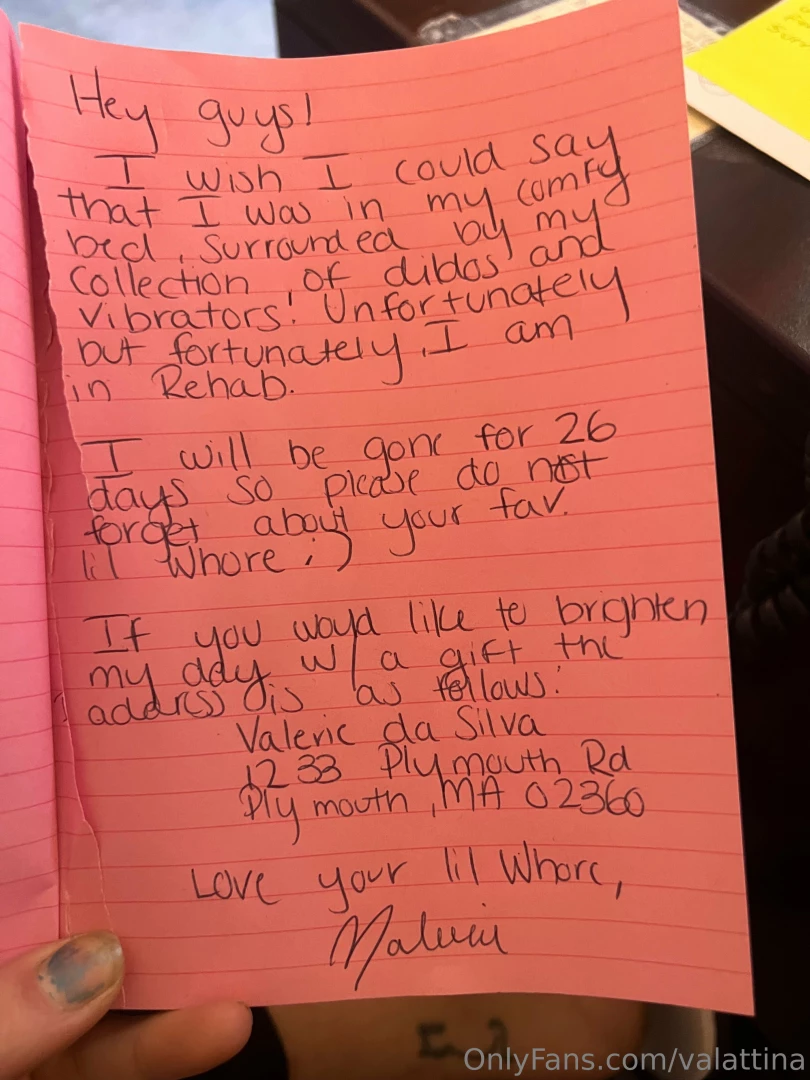 Hey guys!
I wish I could say
that I was in my comfy
bed, surrounded by my
collection of dildos and
vibrators! Unfortunately
but fortunately, I am
in Rehab.
I will be gone for 26
days so please do not
forget about your fav.
lil Whore ;)
If you would like to brighten
my day w/ a gift the
address is as follows:
Valerie da Silva
1233 Plymouth Rd
Plymouth, MA 02360
Love your lil Whore,
OnlyFans.com/valattina